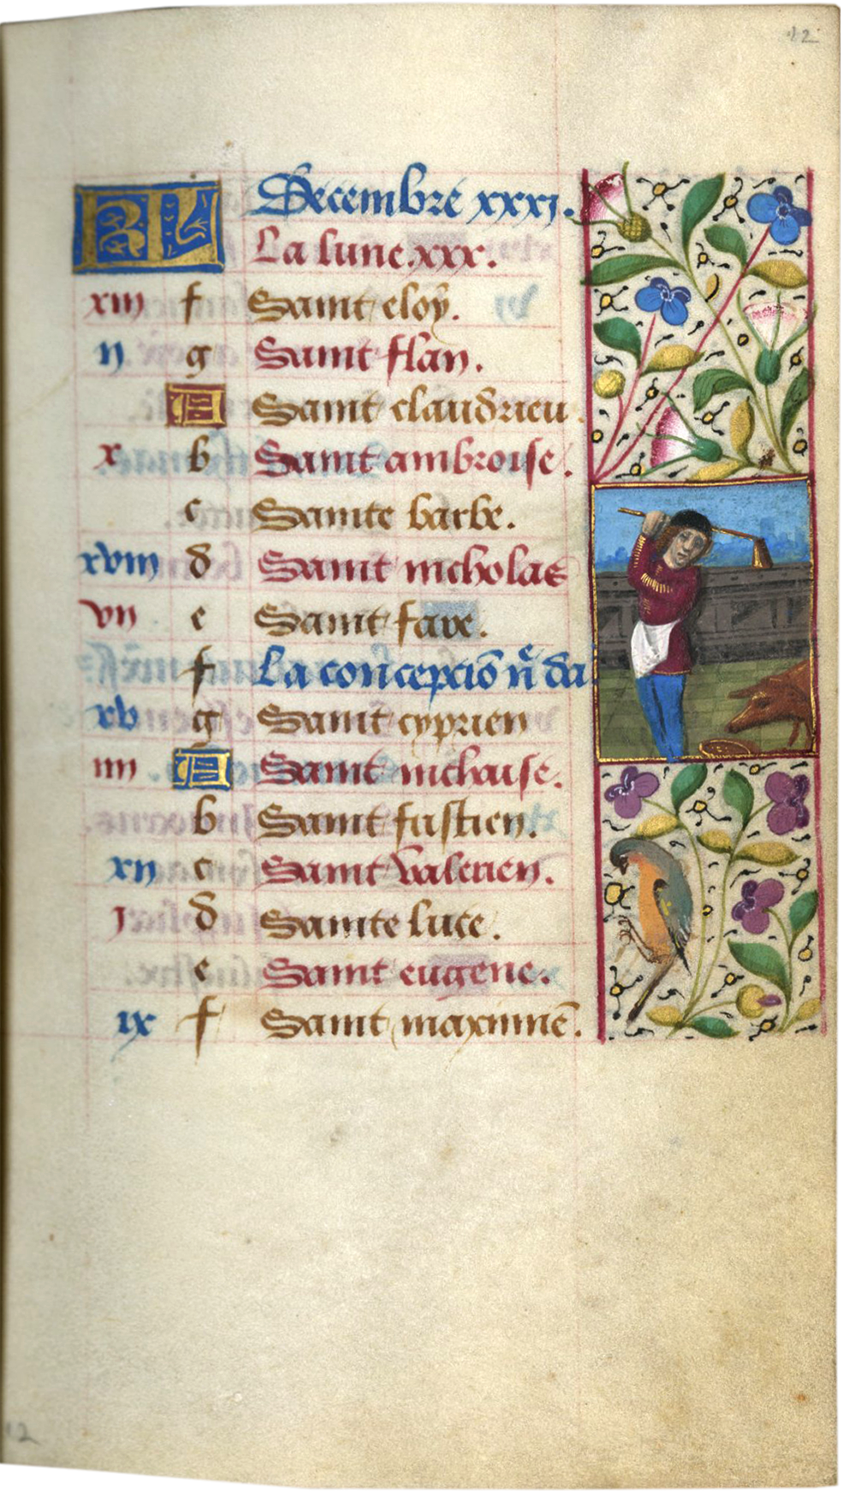 12
KL Decembre xxxj.
La lune.xxx.
xiij f Saint eloy.
ij g Saint flan.
A Saint claudrieu.
x b Saint ambroise.
c Sainte barbe.
xviij d Saint nicholas
vij e Saint fare.
f La concepciō n̄ da
xv g Saint cyprien
iiij A Saint nichaise.
b Saint fustien.
xij c Saint valerien.
j d Sainte luce.
e Saint eugene.
ix f Saint maximinē.
12